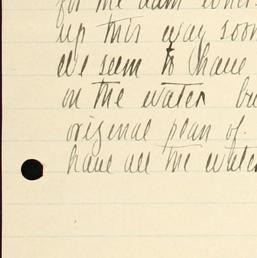 for the dam when
up this way soon
We seem to have
on the water bu
original plan of
have all the water